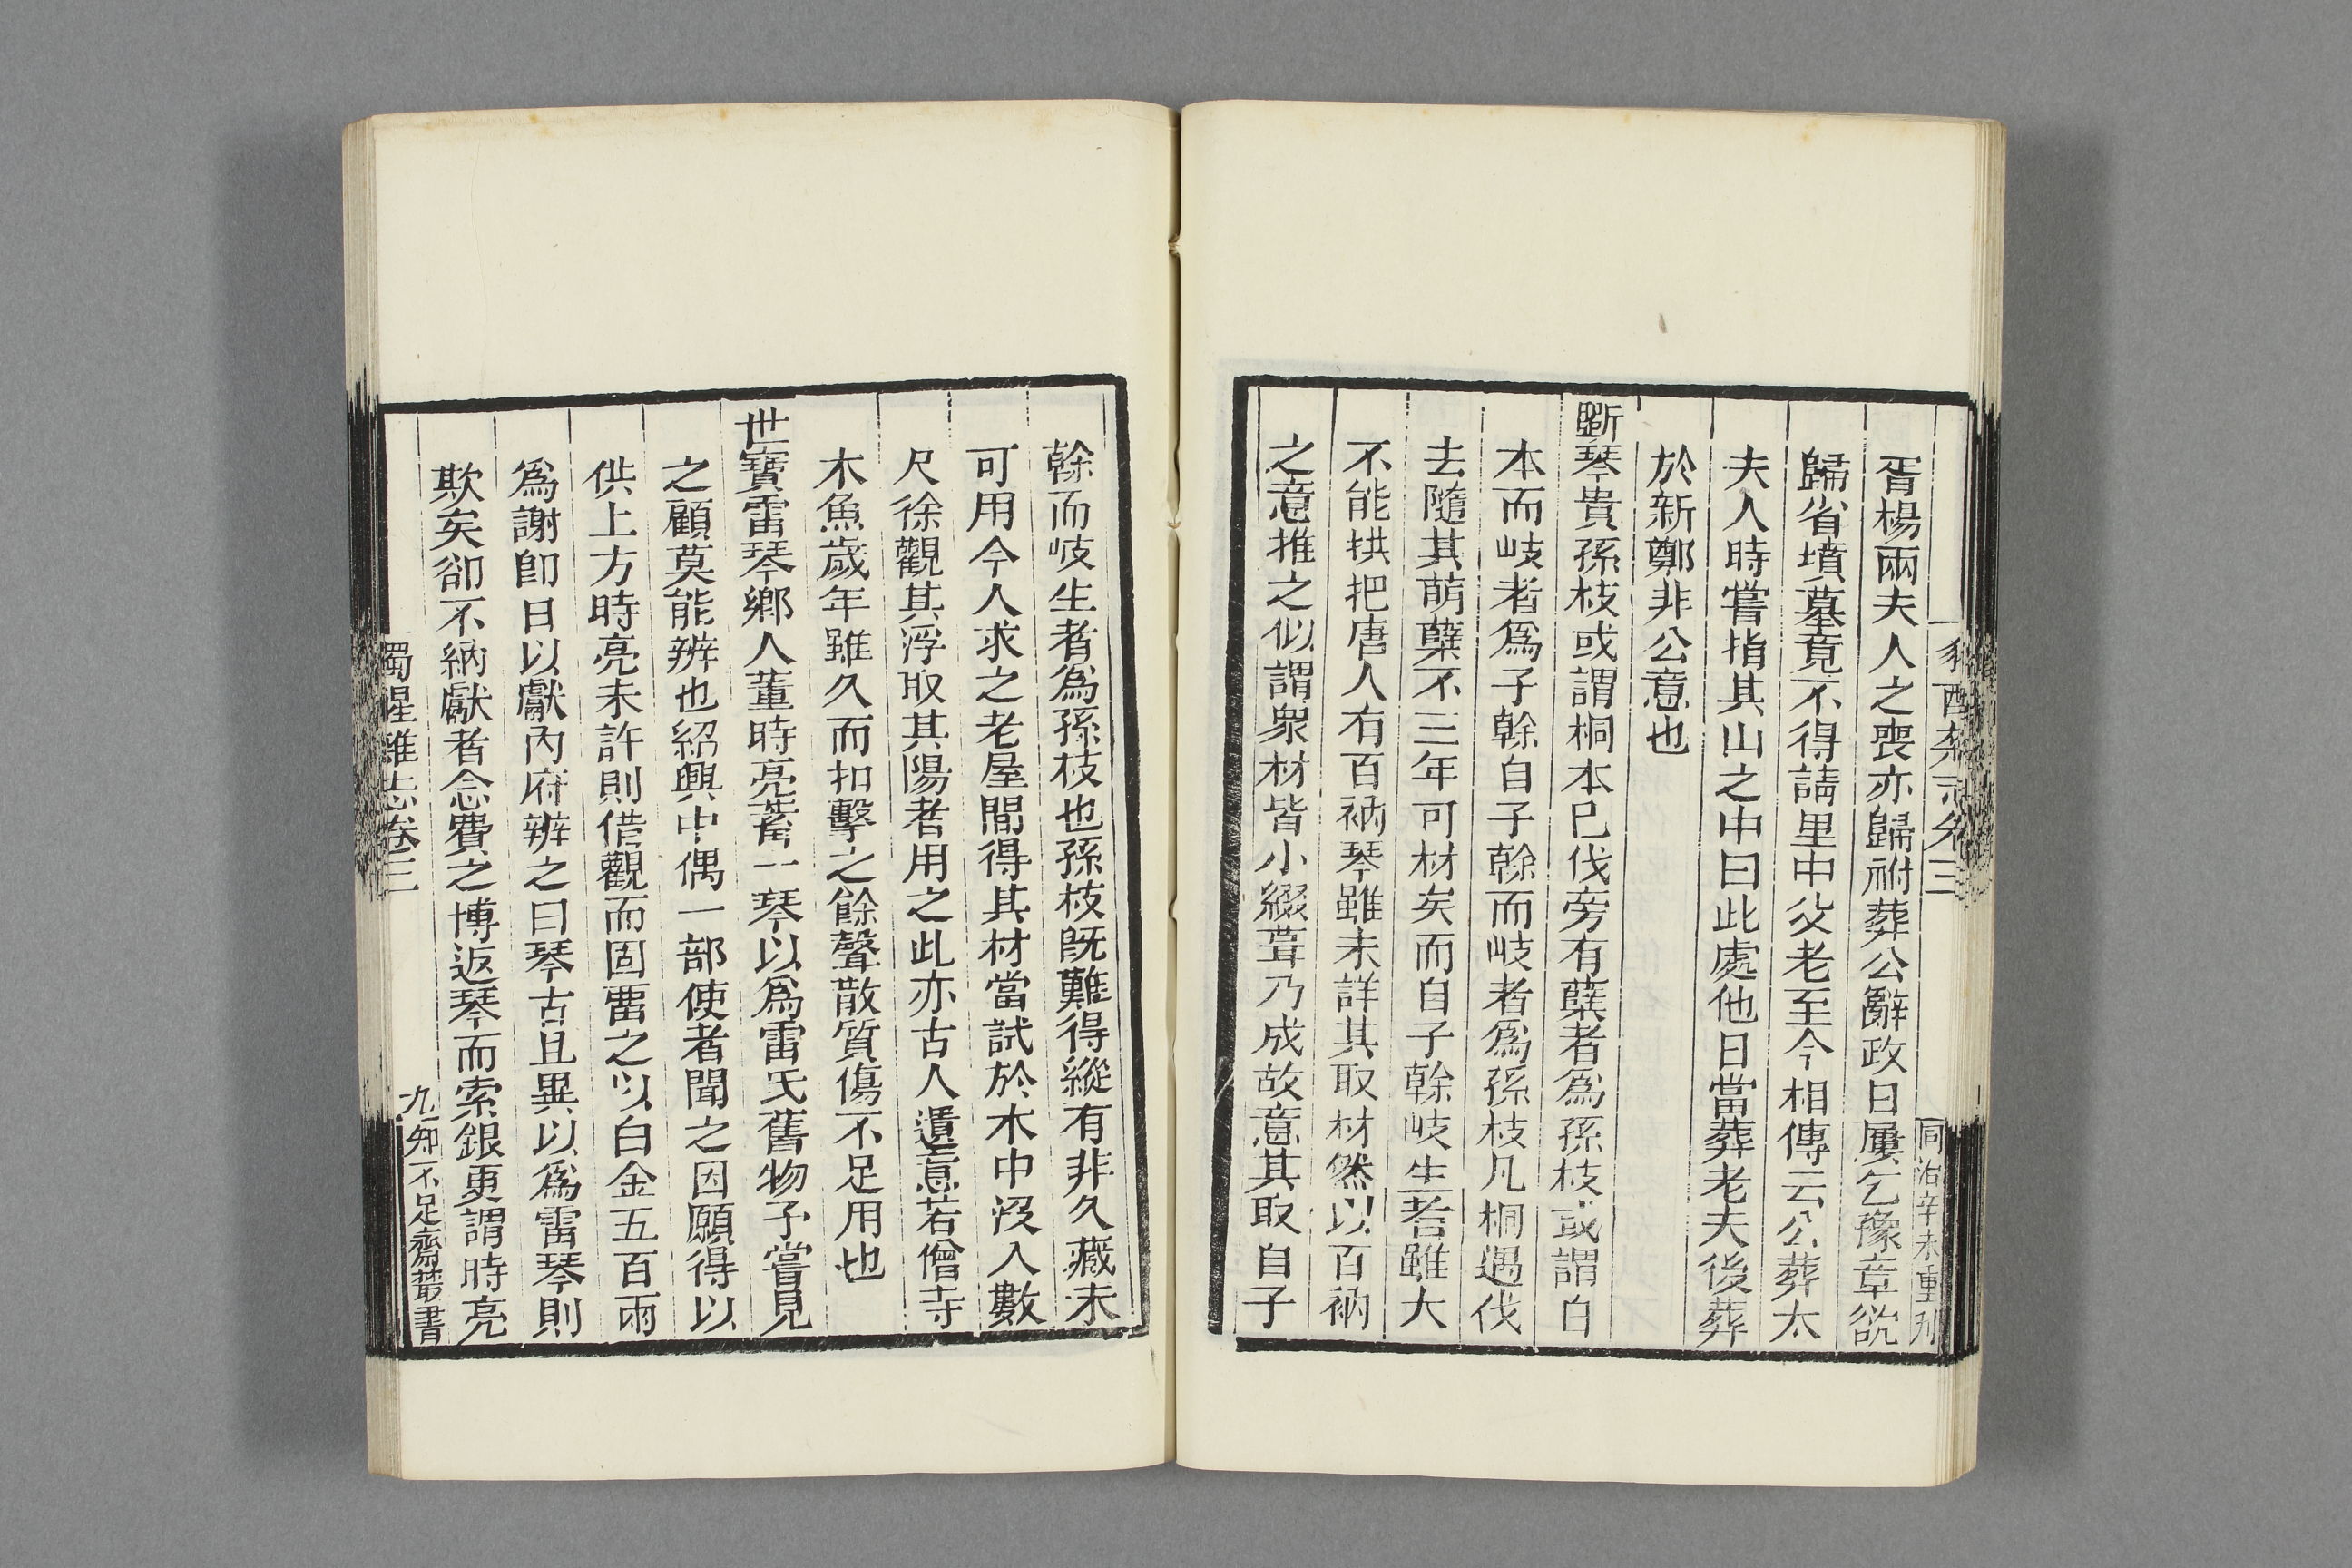 胥楊兩夫人之喪亦歸祔葬公辭政日屢乞豫章欲
歸省墳墓竟不得請里中父老至今相傳云公葬太
夫人時嘗指其山之中曰此處他日當葬老夫後葬
於新鄭非公意也
斲琴貴孫枝或謂桐本已伐旁有蘖者爲孫枝或謂自
本而岐者爲子榦自子榦而岐者爲孫枝凡桐遇伐
去隨其萌蘖不三年可材矣而自子榦岐生者雖大
不能拱把唐人有百衲琴雖未詳其取材然以百衲
之意推之似謂衆材皆小綴葺乃成故意其取自子
同治辛未重刋
榦而岐生者爲孫枝也孫枝旣難得縱有非久藏未
可用今人求之老屋間得其材當試於水中沒入數
尺徐觀其浮取其陽者用之此亦古人遺意若僧寺
木魚歲年雖久而扣擊之餘聲散質傷不足用也
世寶雷琴鄉人董時亮蓄一琴以爲雷氏舊物予嘗見
之顧莫能辨也紹興中偶一部使者聞之因願得以
供上方時亮未許則借觀而固畱之以白金五百兩
爲謝卽日以獻內府辨之曰琴古且異以爲雷琴則
欺矣卻不納獻者念費之博返琴而索銀更謂時亮
獨醒雜志卷三
九
知不足齋叢書